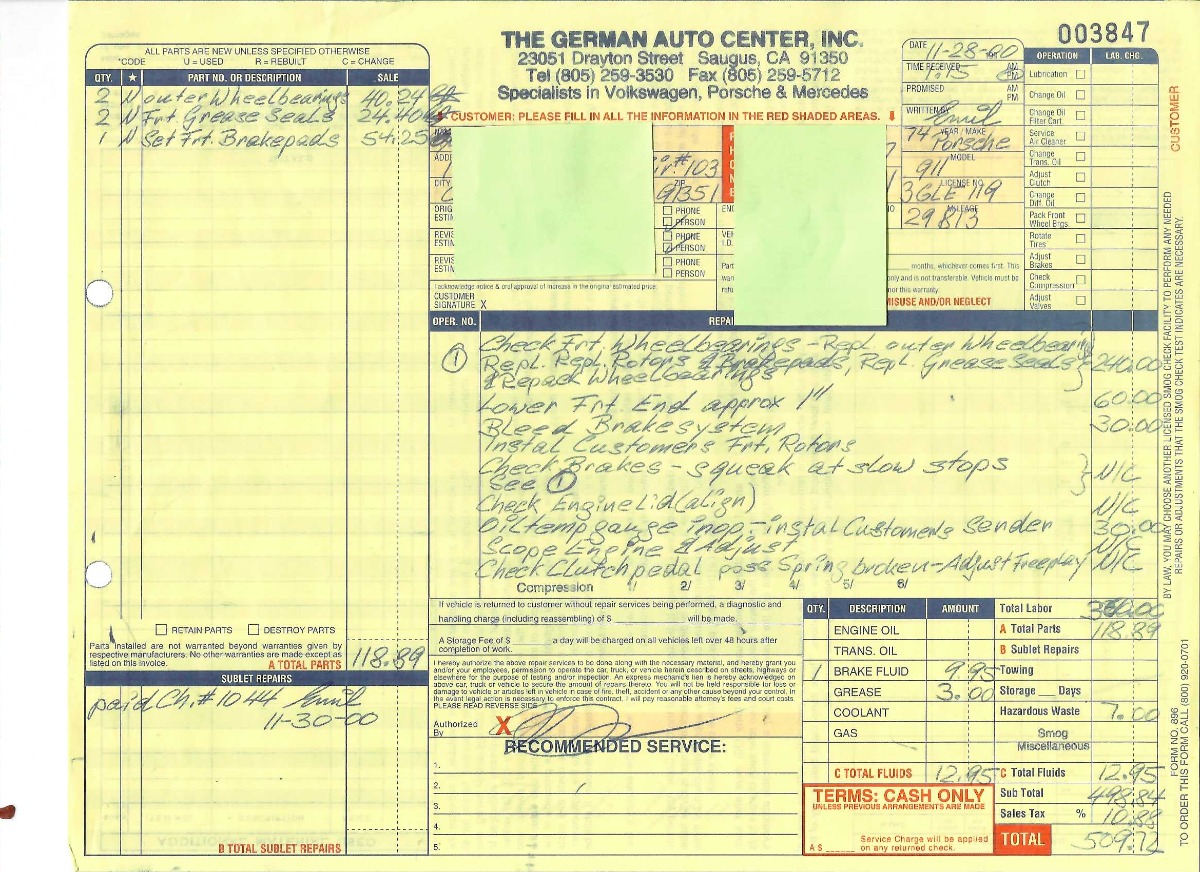 003847
THE GERMAN AUTO CENTER, INC.
23051 Drayton Street Saugus, CA 91350
Tel (805) 259-3530 Fax (805) 259-5712
Specialists in Volkswagen, Porsche & Mercedes
CUSTOMER: PLEASE FILL IN ALL THE INFORMATION IN THE RED SHADED AREAS.
ALL PARTS ARE NEW UNLESS SPECIFIED OTHERWISE
*CODE U = USED R = REBUILT C = CHANGE
QTY. ★ PART NO. OR DESCRIPTION SALE
2 N outer Wheelbearings 40.24
2 N Frt. Grease Seals 24.40
1 N Set Frt. Brakepads 54.25
RETAIN PARTS DESTROY PARTS
Parts installed are not warranted beyond warranties given by
respective manufacturers. No other warranties are made except as
listed on this invoice.
A TOTAL PARTS 118.89
SUBLET REPAIRS
paid Ch. #1044 Emil
11-30-00
B TOTAL SUBLET REPAIRS
#103
ZIP
91351
PHONE
PERSON
PHONE
PERSON
PHONE
PERSON
I acknowledge notice & oral approval of increase in the original estimated price.
CUSTOMER
SIGNATURE X
months, whichever comes first. This
only and is not transferable. Vehicle must be
this warranty.
MISUSE AND/OR NEGLECT
DATE 11-28-00
TIME RECEIVED 1:15 AM PM
PROMISED AM PM
WRITTEN BY Emil
YEAR / MAKE 74 Porsche
MODEL 911
LICENSE NO. 3GLE 119
MILEAGE 29813
OPERATION LAB. CHG.
Lubrication
Change Oil
Change Oil Filter Cart.
Service Air Cleaner
Change Trans. Oil
Adjust Clutch
Change Diff. Oil
Pack Front Wheel Brgs.
Rotate Tires
Adjust Brakes
Check Compression
Adjust Valves
CUSTOMER
OPER. NO. REPAI
1 Check Frt. Wheelbearings - Repl. outer Wheelbearing
Repl. Repl. Rotors & Brakepads, Repl. Grease Seals 240.00
& Repack Wheelbearings
Lower Frt. End approx 1" 60.00
Bleed Brakesystem 30.00
Instal Customers Frt. Rotors
Check Brakes - squeak at slow stops N/C
see 1
Check Engine Lid (align) N/C
Oil temp gauge inop. - instal Customers Sender 30.00
Scope Engine & Adjust N/C
Check Clutchpedal poss Spring broken - Adjust Freeplay N/C
Compression 1/ 2/ 3/ 4/ 5/ 6/
If vehicle is returned to customer without repair services being performed, a diagnostic and
handling charge (including reassembling) of $ will be made.
A Storage Fee of $ a day will be charged on all vehicles left over 48 hours after
completion of work.
I hereby authorize the above repair services to be done along with the necessary material, and hereby grant you
and/or your employees, permission to operate the car, truck, or vehicle herein described on streets, highways or
elsewhere for the purpose of testing and/or inspection. An express mechanic's lien is hereby acknowledged on
above car, truck or vehicle to secure the amount of repairs thereto. You will not be held responsible for loss or
damage to vehicle or articles left in vehicle in case of fire, theft, accident or any other cause beyond your control. In
the event legal action is necessary to enforce this contract, I will pay reasonable attorney's fees and court costs.
PLEASE READ REVERSE SIDE
Authorized
By X
RECOMMENDED SERVICE:
1.
2.
3.
4.
5.
QTY. DESCRIPTION AMOUNT
ENGINE OIL
TRANS. OIL
1 BRAKE FLUID 9.95
GREASE 3.00
COOLANT
GAS
C TOTAL FLUIDS 12.95
TERMS: CASH ONLY
UNLESS PREVIOUS ARRANGEMENTS ARE MADE
Service Charge will be applied
A $ on any returned check.
Total Labor 360.00
A Total Parts 118.89
B Sublet Repairs
Towing
Storage Days
Hazardous Waste 7.00
Smog
Miscellaneous
C Total Fluids 12.95
Sub Total 498.84
Sales Tax % 10.88
TOTAL 509.72
BY LAW, YOU MAY CHOOSE ANOTHER LICENSED SMOG CHECK FACILITY TO PERFORM ANY NEEDED
REPAIRS OR ADJUSTMENTS THAT THE SMOG CHECK TEST INDICATES ARE NECESSARY.
FORM NO. 896
TO ORDER THIS FORM CALL (800) 920-0701